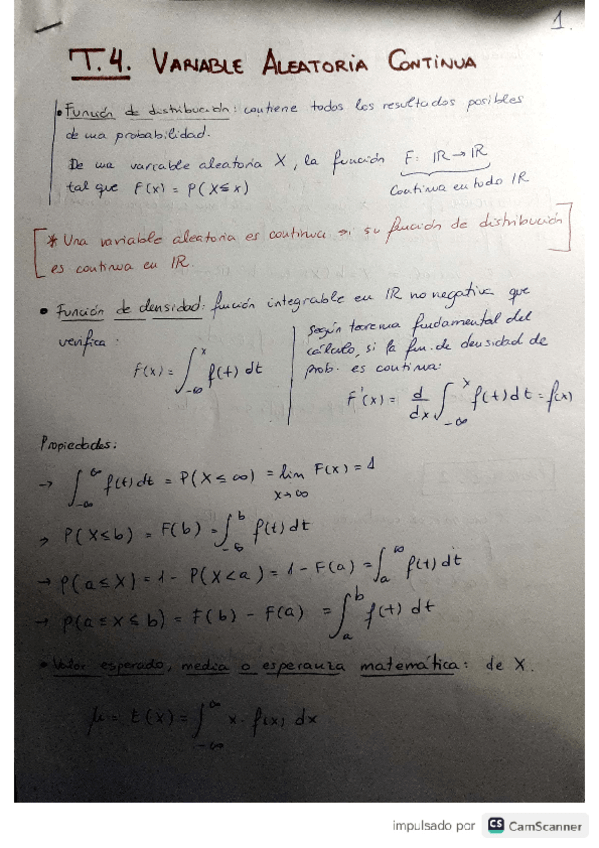 1.
T.4. VARIABLE ALEATORIA CONTINUA
• Función de distribución: contiene todos los resultados posibles
de una probabilidad.
De una variable aleatoria X, la función F: IR → IR
tal que F(x) = P(X ≤ x)
Continua en todo IR
[* Una variable aleatoria es continua si su función de distribución
es continua en IR.]
• Función de densidad: función integrable en IR no negativa que
verifica:
F(x) = ∫_{-∞}^{x} f(t) dt
Según teorema fundamental del
cálculo, si la fun. de densidad de
prob. es continua:
F'(x) = d/dx ∫_{-∞}^{x} f(t) dt = f(x)
Propiedades:
→ ∫_{-∞}^{∞} f(t) dt = P(X ≤ ∞) = lim_{x→∞} F(x) = 1
→ P(X ≤ b) = F(b) = ∫_{-∞}^{b} f(t) dt
→ P(a ≤ X) = 1 - P(X < a) = 1 - F(a) = ∫_{a}^{∞} f(t) dt
→ P(a ≤ x ≤ b) = F(b) - F(a) = ∫_{a}^{b} f(t) dt
• Valor esperado, media o esperanza matemática: de X.
μ = E(x) = ∫_{-∞}^{∞} x · f(x) dx
impulsado por CS CamScanner